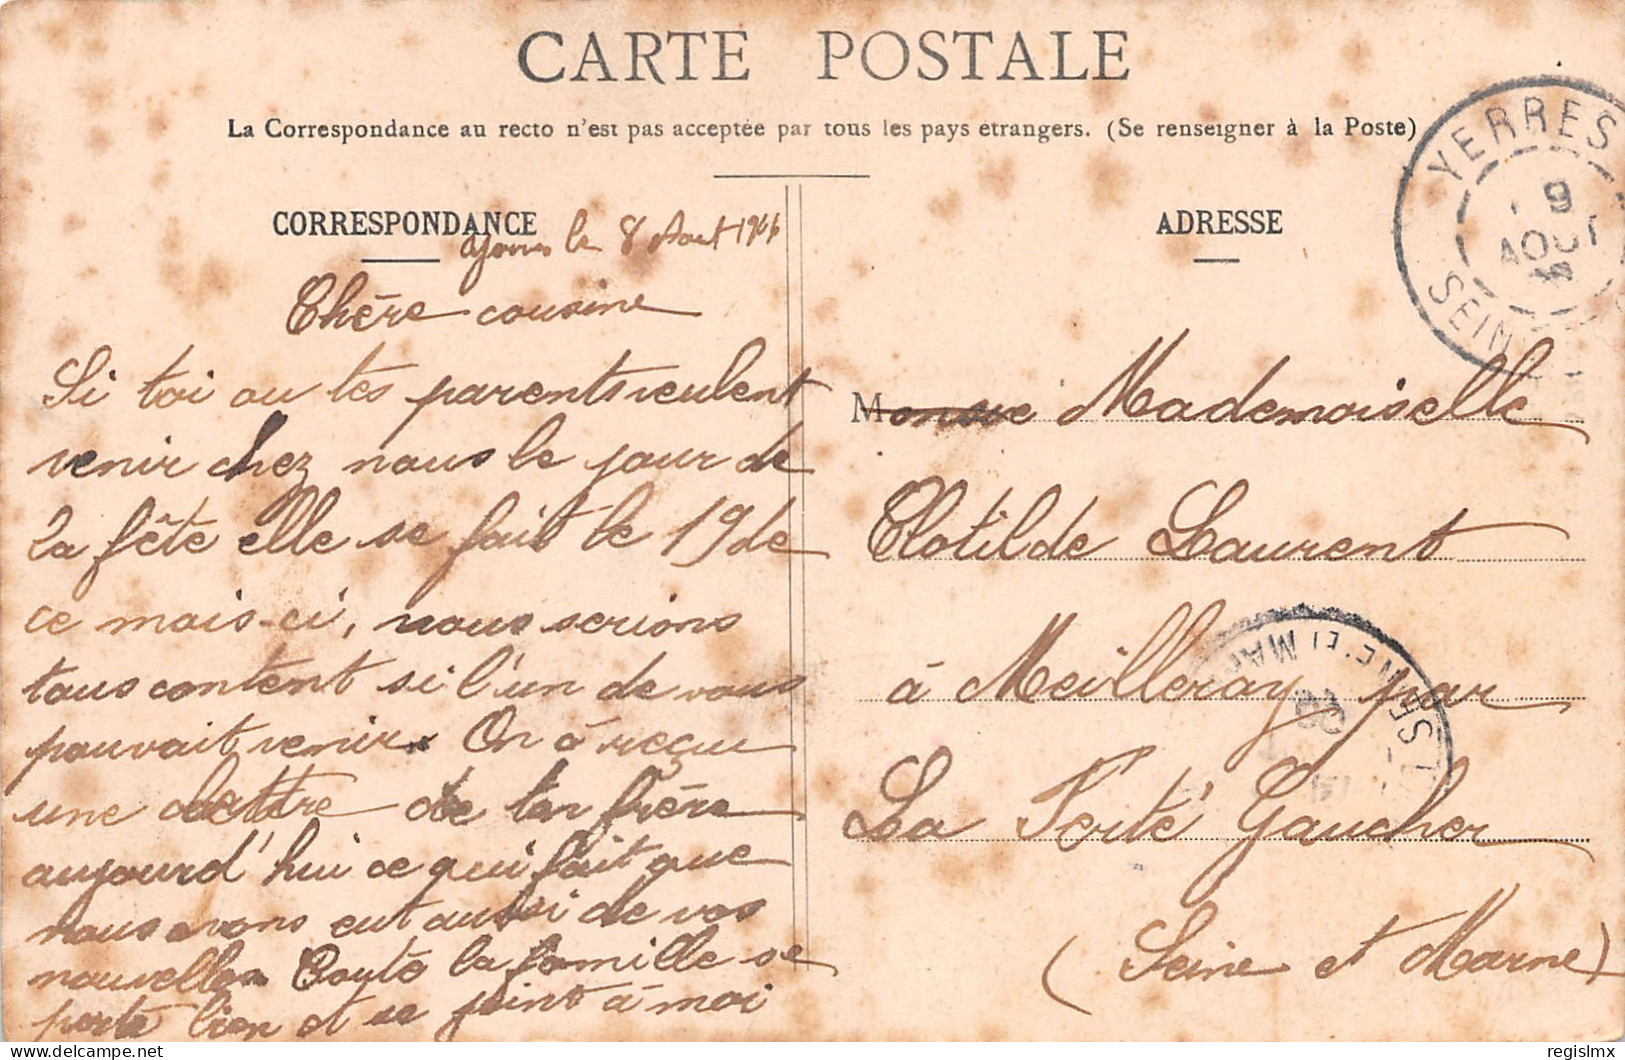 CARTE POSTALE
La Correspondance au recto n'est pas acceptée par tous les pays étrangers. (Se renseigner à la Poste)
CORRESPONDANCE
le 8 Aout
Chère cousine
Si toi ou tes parents veulent
venir chez nous le jour de
la fête elle se fait le 19 de
ce mois-ci, nous serions
tous content si l'un de vous
pouvait venir. On à reçue
une lettre de ton frère
aujourd'hui ce qui fait que
nous avons eut aussi de vos
nouvelles Toute la famille se
porte bien et se joint à moi
ADRESSE
M Mademoiselle
Clotilde Laurent
à Meilleray par
La Ferté Gaucher
(Seine et Marne)
YERRES
9
AOUT
SEINE
NE-ET-MAR
regislmx